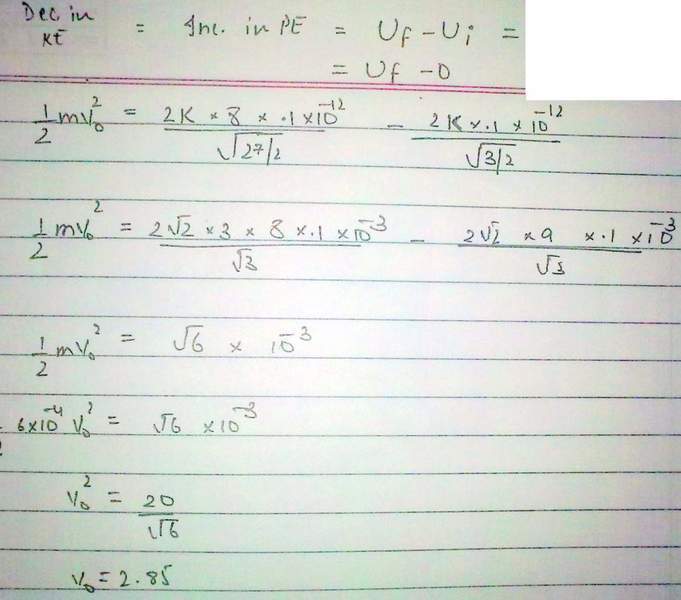 Dec. in KE = Inc. in PE = Uf - Ui =
= Uf - 0
1/2 mv₀² = 2K × 8 × .1 × 10⁻¹² / √27/2 - 2K × .1 × 10⁻¹² / √3/2
1/2 mv₀² = 2√2 × 3 × 8 × .1 × 10⁻³ / √3 - 2√2 × 9 × .1 × 10⁻³ / √3
1/2 mv₀² = √6 × 10⁻³
6×10⁻⁴ v₀² = √6 × 10⁻³
v₀² = 20 / √6
v₀ = 2.85